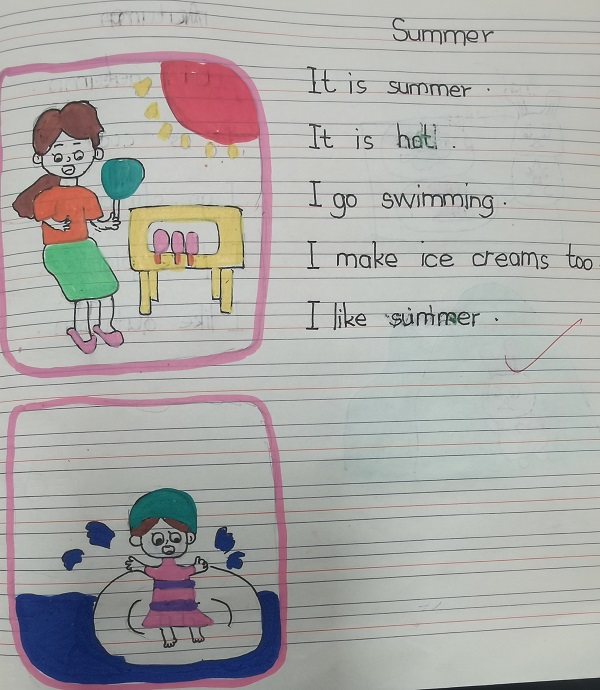 Summer
It is summer.
It is hot.
I go swimming.
I make ice creams too
I like summer.